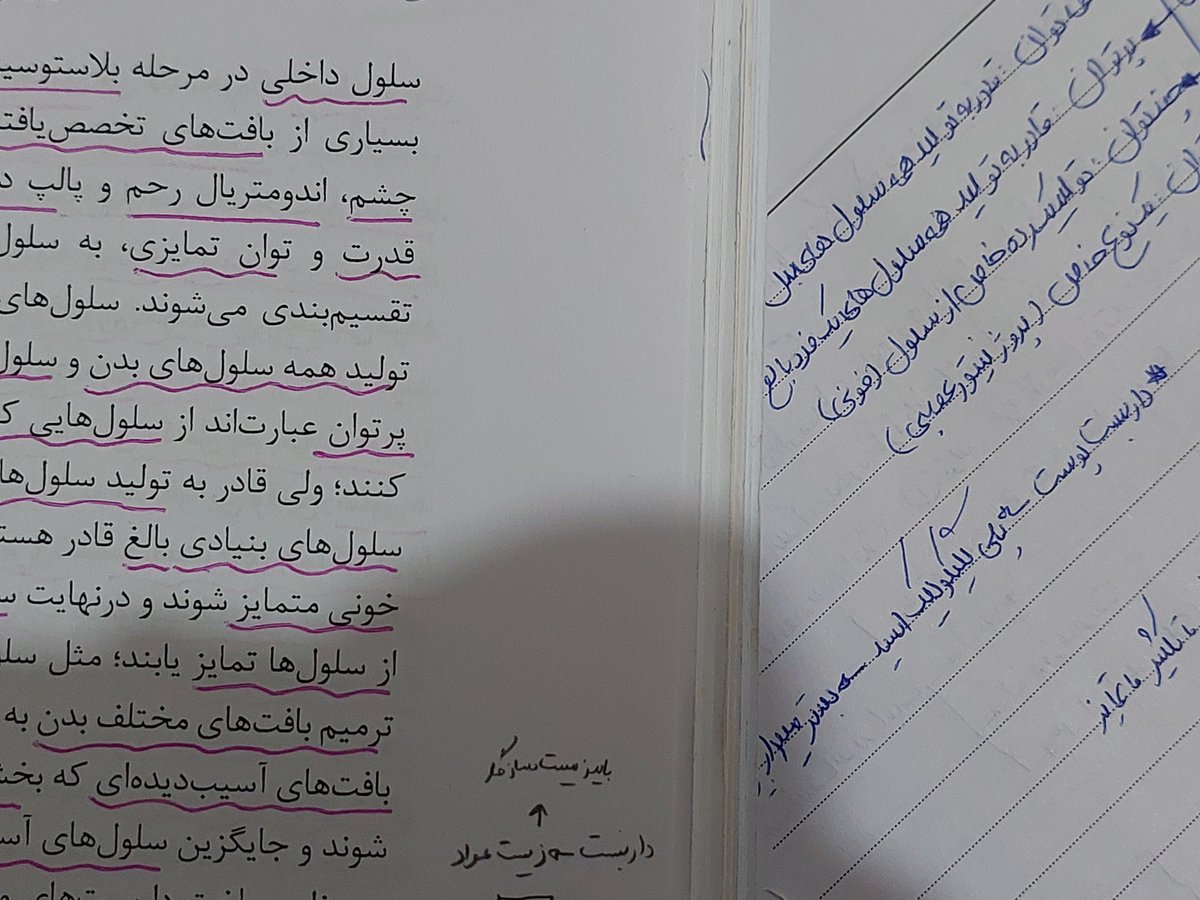 سلول داخلی در مرحله بلاستوسی
بسیاری از بافت‌های تخصص‌یافت
چشم، اندومتریال رحم و پالپ د
قدرت و توان تمایزی، به سلول
تقسیم‌بندی می‌شوند. سلول‌های
تولید همه سلول‌های بدن و سلول
پرتوان عبارت‌اند از سلول‌هایی ک
کنند؛ ولی قادر به تولید سلول‌ها
سلول‌های بنیادی بالغ قادر هست
خونی متمایز شوند و درنهایت س
از سلول‌ها تمایز یابند؛ مثل سلو
ترمیم بافت‌های مختلف بدن به
بافت‌های آسیب‌دیده‌ای که بخش
شوند و جایگزین سلول‌های آس
باید زیست سازگار
↑
داربست زیست مواد
توان: قادر به تولید همه سلول های بدن
پرتوان: قادر به تولید همه سلول های یک فرد بالغ
چندتوان: تولید رده خاص از سلول (خونی)
توان: یک نوع خاص (پروژنیتور عصبی)
* داربست پوست پلی گلیکولیک اسید
تکثیر تمایز